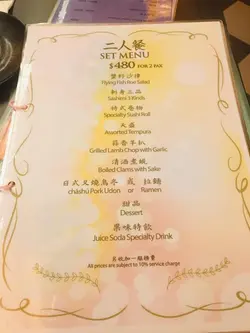 二人餐
SET MENU
$480 FOR 2 PAX
蟹籽沙律
Flying Fish Roe Salad
刺身三品
Sashimi 3 Kinds
特式卷物
Specialty Sushi Roll
天盛
Assorted Tempura
蒜香羊扒
Grilled Lamb Chop with Garlic
清酒煮蜆
Boiled Clams with Sake
日式叉燒烏冬 或 拉麵
chāshū Pork Udon or Ramen
甜品
Dessert
果味特飲
Juice Soda Specialty Drink
另收加一服務費
All prices are subject to 10% service charge